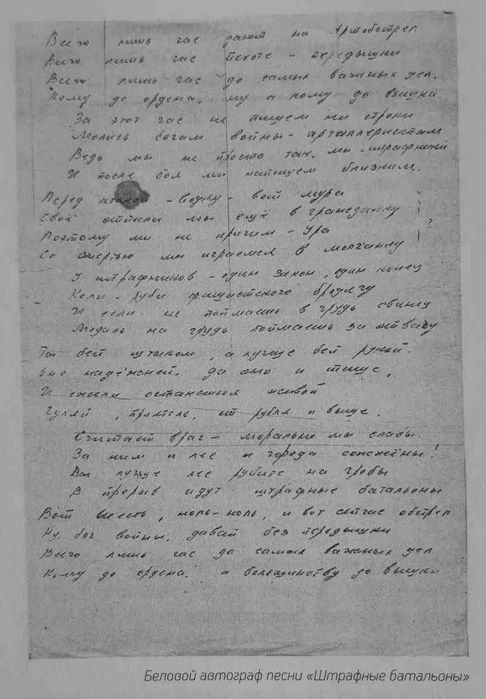 Всего лишь час дают на Артобстрел
Всего лишь час пехоте - передышки
Всего лишь час до самых важных дел.
Кому до ордена, ну а кому до вышки
За этот час не пишем ни строки
Молись богам войны - артиллеристам
Ведь мы не просто так, мы - штрафники
И после боя мы напишем близким.
Перед - водку - вот мура
Своё отпили мы ещё в гражданку
Поэтому мы не кричим - Ура
Со смертью мы играемся в молчанку
У штрафников - один закон, один конец
Коли - руби фашистского бродягу
И если не поймаешь в грудь свинец
Медаль на грудь поймаешь за отвагу
Ты бей штыком, а лучше бей рукой.
Оно надёжней, да оно и тише,
И ежели останешься живой
Гуляй, приятель, от рубля и выше.
Считает враг - морально мы слабы.
За ним и лес и города сожжёны!
Вы лучше лес рубите на гробы
В прорыв идут штрафные батальоны
Вот шесть, ноль-ноль, и вот сейчас обстрел
Ну, бог войны, давай без передышки
Всего лишь час до самых важных дел
Кому до ордена, а большинству до вышки
Беловой автограф песни «Штрафные батальоны»